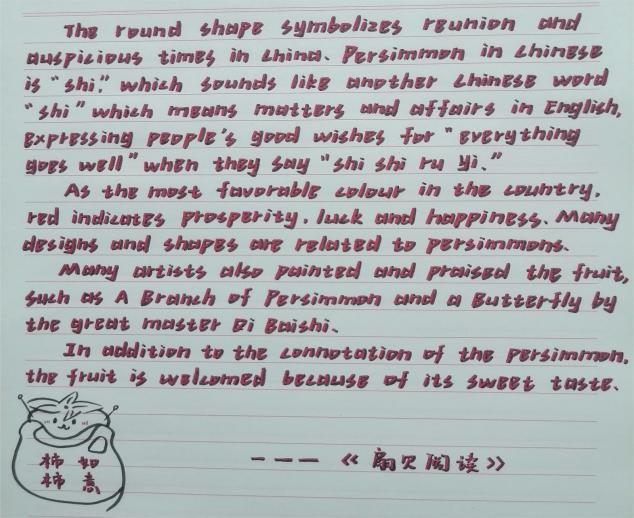 The round shape symbolizes reunion and
auspicious times in China. Persimmon in Chinese
is "shi," which sounds like another Chinese word
"shi" which means matters and affairs in English,
expressing people's good wishes for "everything
goes well" when they say "shi shi ru yi."
As the most favorable colour in the country,
red indicates prosperity, luck and happiness. Many
designs and shapes are related to persimmons.
Many artists also painted and praised the fruit,
such as A Branch of Persimmon and a Butterfly by
the great master Qi Baishi.
In addition to the connotation of the persimmon,
the fruit is welcomed because of its sweet taste.
柿 如
柿 意
———《扇贝阅读》